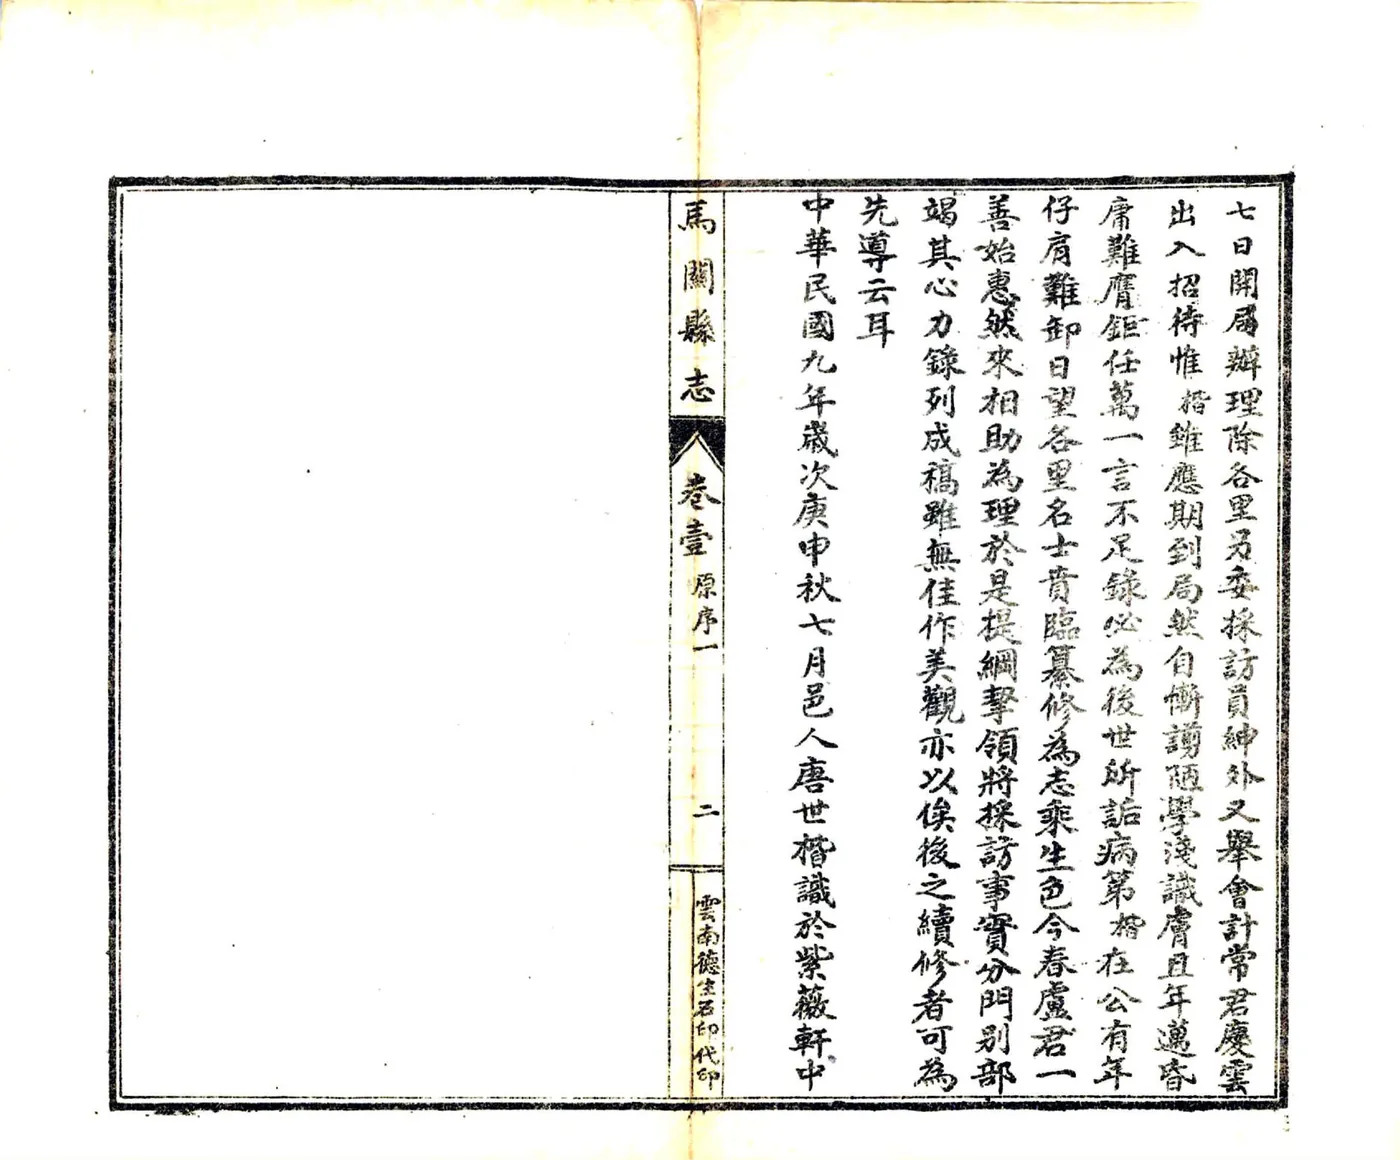 七日開局辦理除各里另委採訪員紳外又舉會計常君慶雲
出入招待惟楷雖應期到局然自慚謭陋學淺識膚且年邁昏
庸難膺鉅任萬一言不足錄必為後世所詬病第楷在公有年
仔肩難卸日望各里名士賁臨纂修為志乘生色今春盧君一
善始惠然來相助為理於是提綱挈領將採訪事實分門別部
竭其心力錄列成稿雖無佳作美觀亦以俟後之續修者可為
先導云耳
中華民國九年歲次庚申秋七月邑人唐世楷識於紫薇軒中
馬關縣志
卷壹
原序一
二
雲南德生石印代印